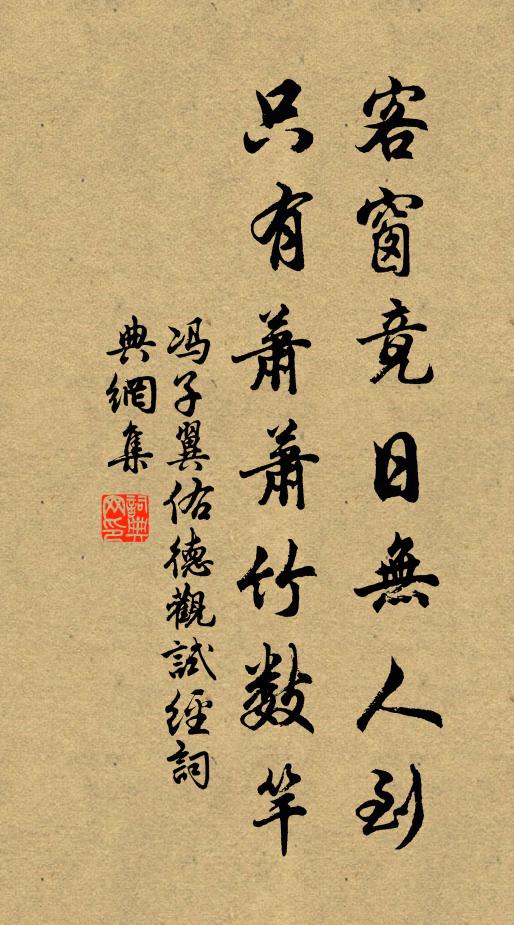 客窗竟日無人到
只有蕭蕭竹数竿
冯子翼佑德觀試經詞
典網集
詞典
网印